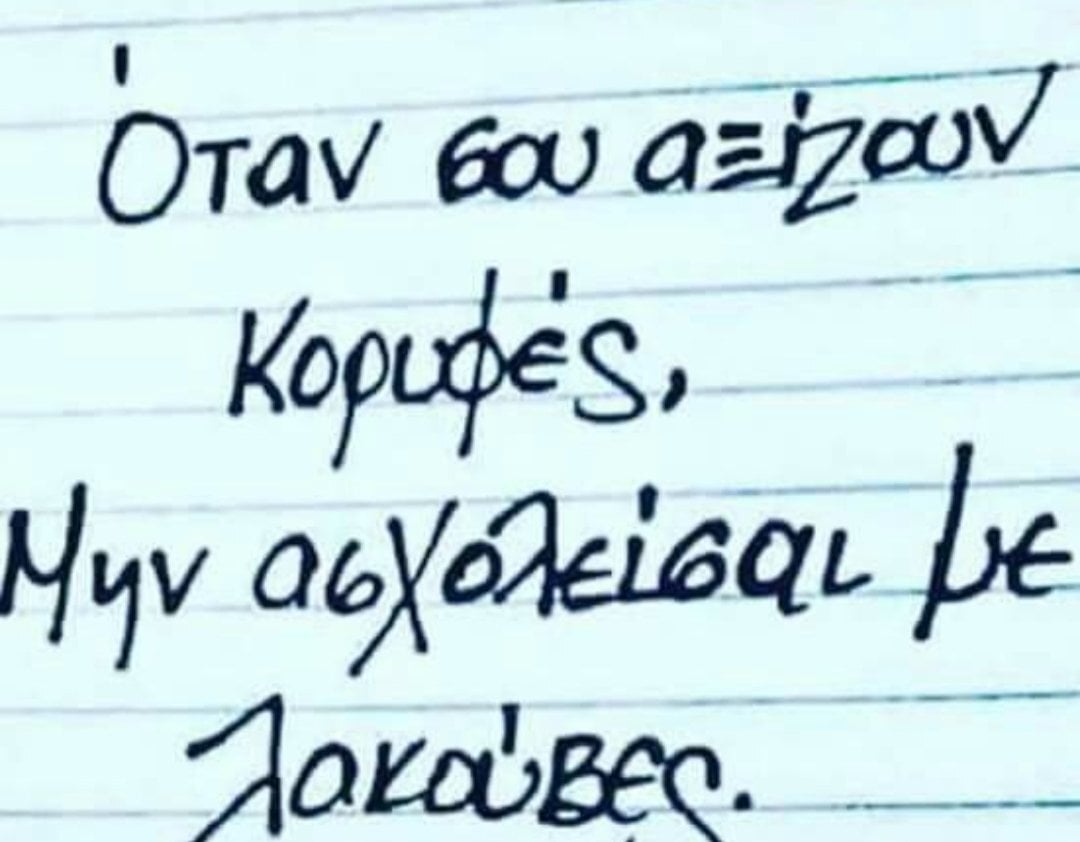 Όταν σου αξίζουν
Κορυφές,
Μην ασχολείσαι με
λακούβες.